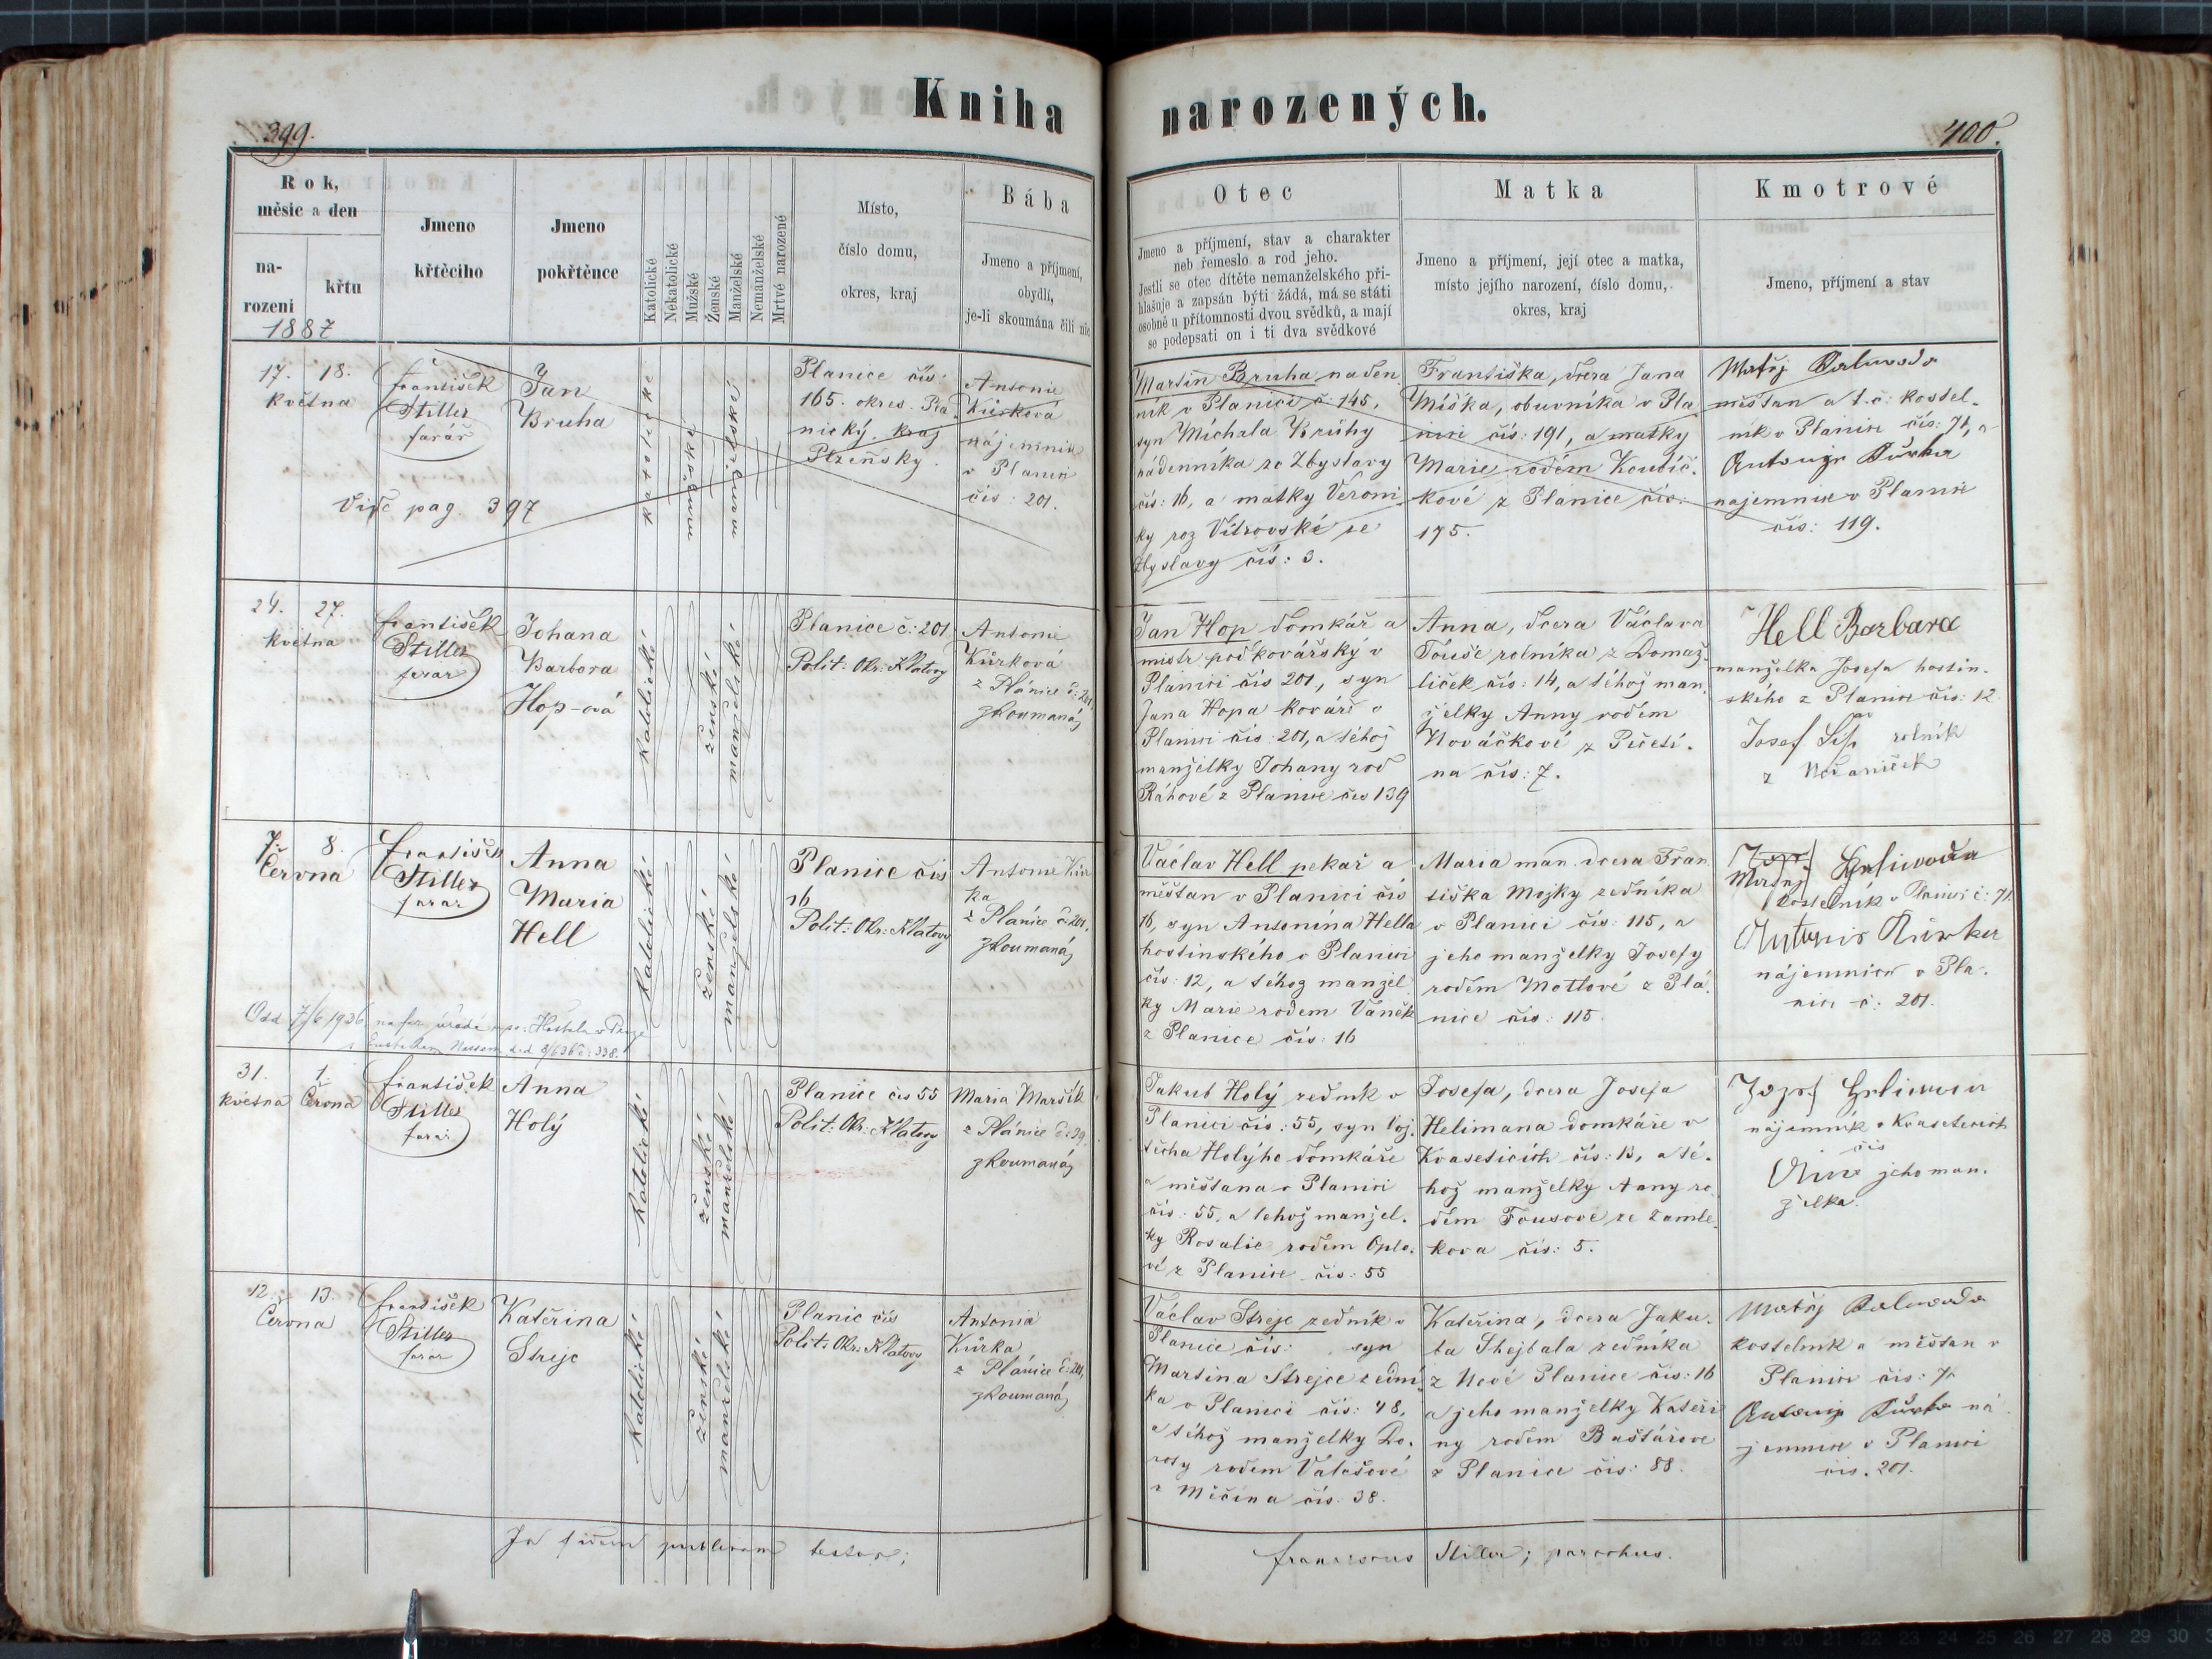 Kniha narozených.
399.
400.
Rok,
měsíc a den
na-
rození
křtu
1887
Jmeno
křtěcího
Jmeno
pokřtěnce
Katolické
Nekatolické
Mužské
Ženské
Manželské
Nemanželské
Mrtvé narozené
Místo,
číslo domu,
okres, kraj
Bába
Jmeno a příjmení,
obydlí,
je-li skoumána čili nic
Otec
Jmeno a příjmení, stav a charakter
neb řemeslo a rod jeho.
Jestli se otec dítěte nemanželského při-
hlašuje a zapsán býti žádá, má se státi
osobně u přítomnosti dvou svědků, a mají
se podepsati on i ti dva svědkové
Matka
Jmeno a příjmení, její otec a matka,
místo jejího narození, číslo domu,
okres, kraj
Kmotrové
Jmeno, příjmení a stav
17. 18.
května
František
Stiller
farář
Jan
Bruha
Vide pag. 397
katolické
mužské
manželské
Planice čís:
165. okres Pla
nický. kraj
Plzeňský.
Antonie
Kůrková
nájemnice
v Planici
čís: 201.
Martin Bruha náden
ník v Planici č 145,
syn Michala Brůhy
nádenníka ze Zbyslavy
čís: 16, a matky Veroni
ky roz Vítrovské ze
Zbyslavy čís: 3.
Františka, dcera Jana
Míška, obuvníka v Pla
nici čís: 191, a matky
Marie rodem
kové z Planice čís:
175.
Matěj
měšťan a t. č. kostel-
ník v Planici čís: 71, a
Antonje Kůrka
nájemnice v Planici
čís: 119.
24. 27.
května
František
Stiller
farář
Johana
Barbora
Hop-ová
katolické
ženské
manželské
Planice č: 201
Polit: Okr: Klatovy
Antonie
Kůrková
z Plánice č: 201,
zkoumaná
Jan Hop domkář a
mistr podkovářský v
Planici čís 201, syn
Jana Hopa kováře v
Planici čís: 201, a téhož
manželky Johany rod
Ráhové z Planice čís 139
Anna, dcera Václava
Touše rolníka z Domaž-
liček čís: 14, a téhož man-
želky Anny rodem
Nováčkové z Pečetí-
na čís: 7.
Hell Barbara
manželka Josefa hostin-
ského z Planice čís: 12
Josef rolník
z
7. 8.
Června
František
Stiller
farář
Anna
Maria
Hell
katolické
ženské
manželské
Planice čís
16
Polit: Okr: Klatovy
Antonie Kůr
ka
z Plánice č: 201,
zkoumaná
Václav Hell pekař a
měšťan v Planici čís
16, syn Antonína Hella
hostinského v Planici
čís: 12, a téhož manžel
ky Marie rodem Vaněk
z Planice čís: 16
Maria man. dcera Fran
tiška Mojky zedníka
v Planici čís: 115, a
jeho manželky Josefy
rodem Mottové z Plá-
nice čís: 115
Matěj
kostelník v Planici č: 71.
Antonie Kůrka
nájemnice v Pla-
nici č: 201.
Odd 7/6 1936 na far. úřadě v Praze
31. 1.
května Června
František
Stiller
farář
Anna
Holý
katolické
ženské
manželské
Planice čís 55
Polit: Okr: Klatovy
Maria Maršík
z Plánice č: 39,
zkoumaná
Jakub Holý zedník v
Planici čís: 55, syn Voj-
těcha Holýho domkáře
a měšťana v Planici
čís: 55, a téhož manžel-
ky Rosalie rodem Oplo-
vé z Planice čís: 55
Josefa, dcera Josefa
Helimana domkáře v
Kvaseticích čís: 13, a té-
hož manželky Anny ro
dem Tousové ze Zamle-
kova čís: 5.
Josef
nájemník v Kvaseticích
čís
jeho man-
želka.
12. 13.
Června
František
Stiller
farář
Kateřina
Strejc
katolické
ženské
manželské
Planic čís
Polit: Okr: Klatovy
Antonia
Kůrka
z Plánice č: 201,
zkoumaná
Václav Strejc zedník v
Planice čís: syn
Martina Strejce zední
ka v Planici čís: 48,
a téhož manželky Do-
roty rodem Valešové
z Měčína čís. 38.
Kateřina, dcera Jaku-
ba Shejbala zedníka
z Nové Planice čís: 16
a jeho manželky Kateři
ny rodem Baštářové
z Planice čís: 88.
Matěj
kostelník a měšťan v
Planici čís: 71
Antonie Kůrka ná
jemnice v Planici
čís. 201.
In fidem publicam testor;
Franciscus Stiller; parochus.